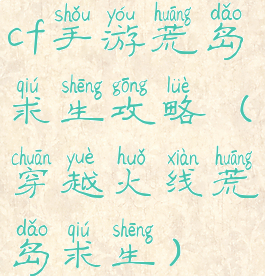 shǒu yóu huāng dǎo
cf手游荒岛
qiú shēng gōng lüè
求生攻略（
chuān yuè huǒ xiàn huāng
穿越火线荒
dǎo qiú shēng
岛求生）